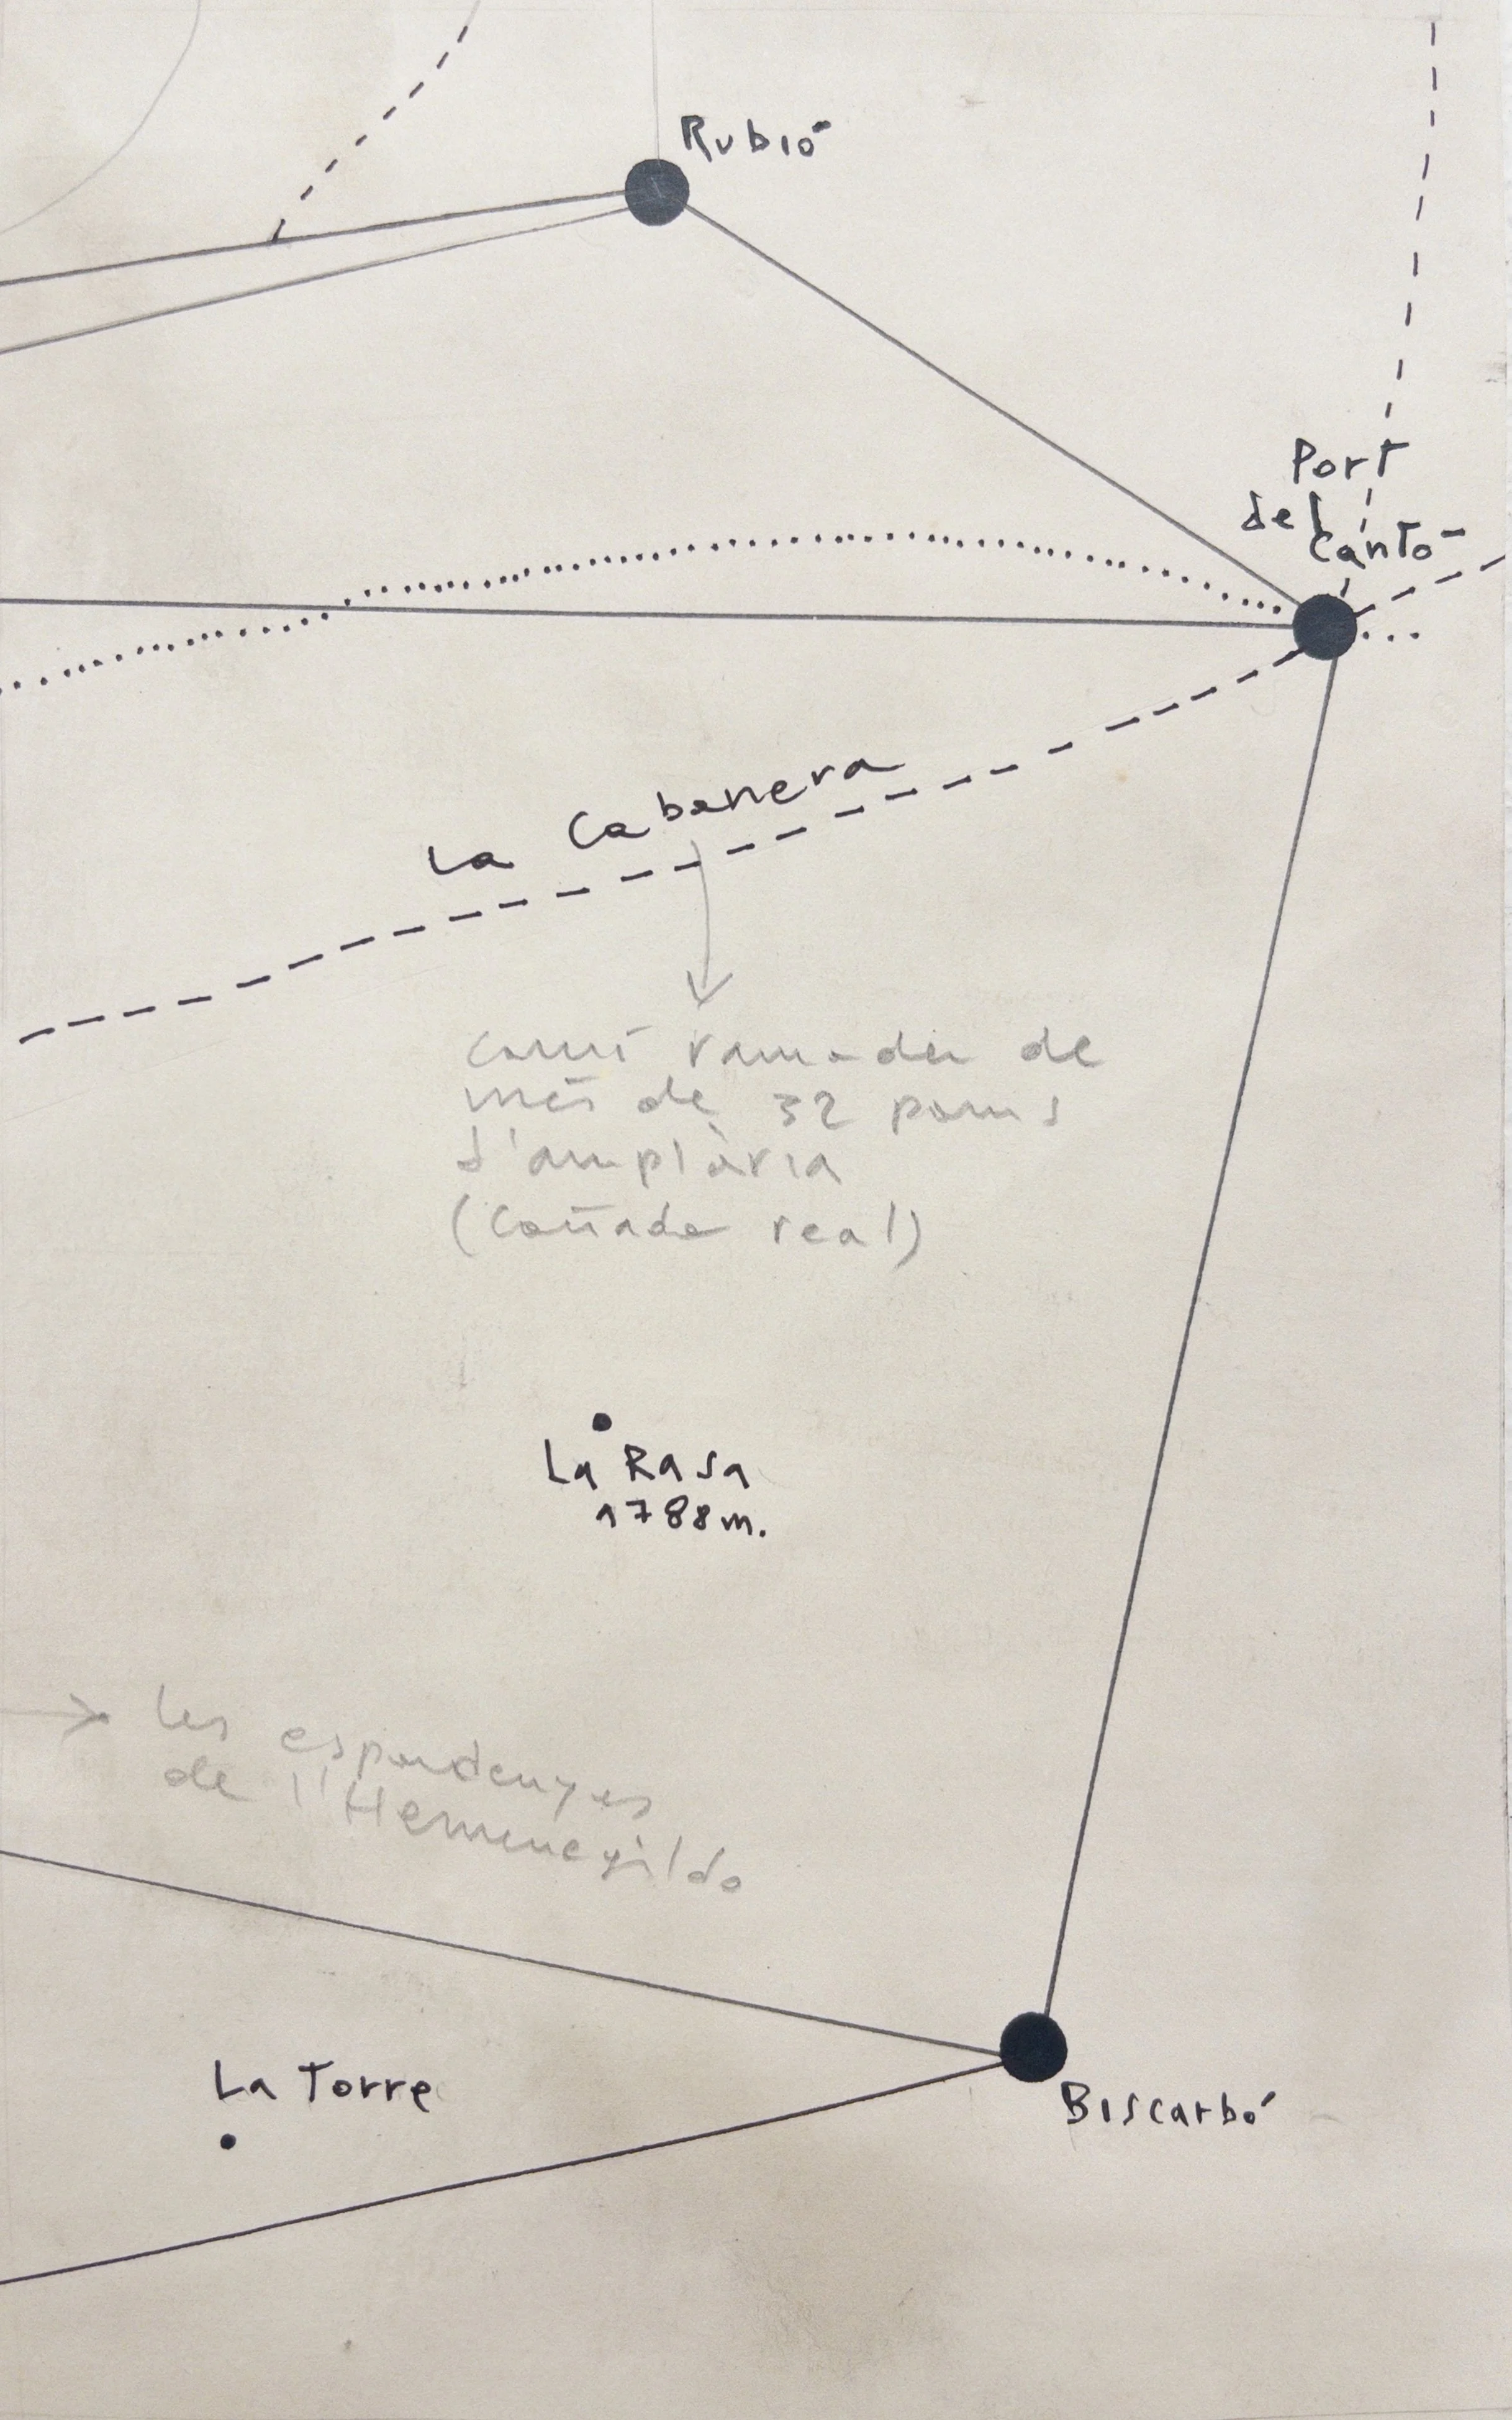 Rubió
Port
del
Cantó
La Cabanera
camí ramader de
més de 32 pams
d'amplària
(Cañada real)
La Rasa
1788 m.
les espardenyes
de l'Hermenegildo
La Torre
Biscarbó